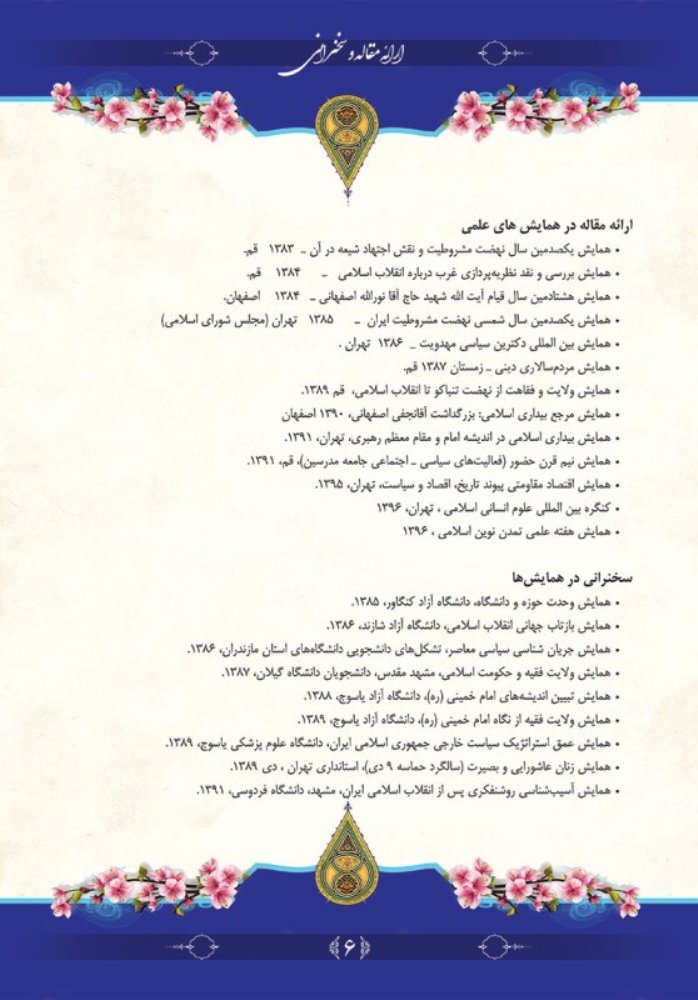 ارائه مقاله و سخنرانی
ارائه مقاله در همایش های علمی
• همایش یکصدمین سال نهضت مشروطیت و نقش اجتهاد شیعه در آن ـ ۱۳۸۳ قم.
• همایش بررسی و نقد نظریه‌پردازی غرب درباره انقلاب اسلامی ـ ۱۳۸۴ قم.
• همایش هشتادمین سال قیام آیت الله شهید حاج آقا نورالله اصفهانی ـ ۱۳۸۴ اصفهان.
• همایش یکصدمین سال شمسی نهضت مشروطیت ایران ـ ۱۳۸۵ تهران (مجلس شورای اسلامی)
• همایش بین المللی دکترین سیاسی مهدویت ـ ۱۳۸۶ تهران .
• همایش مردم‌سالاری دینی ـ زمستان ۱۳۸۷ قم.
• همایش ولایت و فقاهت از نهضت تنباکو تا انقلاب اسلامی، قم ۱۳۸۹.
• همایش مرجع بیداری اسلامی: بزرگداشت آقانجفی اصفهانی، ۱۳۹۰ اصفهان
• همایش بیداری اسلامی در اندیشه امام و مقام معظم رهبری، تهران، ۱۳۹۱.
• همایش نیم قرن حضور (فعالیت‌های سیاسی ـ اجتماعی جامعه مدرسین)، قم، ۱۳۹۱.
• همایش اقتصاد مقاومتی پیوند تاریخ، اقصاد و سیاست، تهران، ۱۳۹۵.
• کنگره بین المللی علوم انسانی اسلامی ، تهران، ۱۳۹۶
• همایش هفته علمی تمدن نوین اسلامی ، ۱۳۹۶
سخنرانی در همایش‌ها
• همایش وحدت حوزه و دانشگاه، دانشگاه آزاد کنگاور، ۱۳۸۵.
• همایش بازتاب جهانی انقلاب اسلامی، دانشگاه آزاد شازند، ۱۳۸۶.
• همایش جریان شناسی سیاسی معاصر، تشکل‌های دانشجویی دانشگاه‌های استان مازندران، ۱۳۸۶.
• همایش ولایت فقیه و حکومت اسلامی، مشهد مقدس، دانشجویان دانشگاه گیلان، ۱۳۸۷.
• همایش تبیین اندیشه‌های امام خمینی (ره)، دانشگاه آزاد یاسوج، ۱۳۸۸.
• همایش ولایت فقیه از نگاه امام خمینی (ره)، دانشگاه آزاد یاسوج، ۱۳۸۹.
• همایش عمق استراتژیک سیاست خارجی جمهوری اسلامی ایران، دانشگاه علوم پزشکی یاسوج، ۱۳۸۹.
• همایش زنان عاشورایی و بصیرت (سالگرد حماسه ۹ دی)، استانداری تهران ، دی ۱۳۸۹.
• همایش آسیب‌شناسی روشنفکری پس از انقلاب اسلامی ایران، مشهد، دانشگاه فردوسی، ۱۳۹۱.
﴿۶﴾